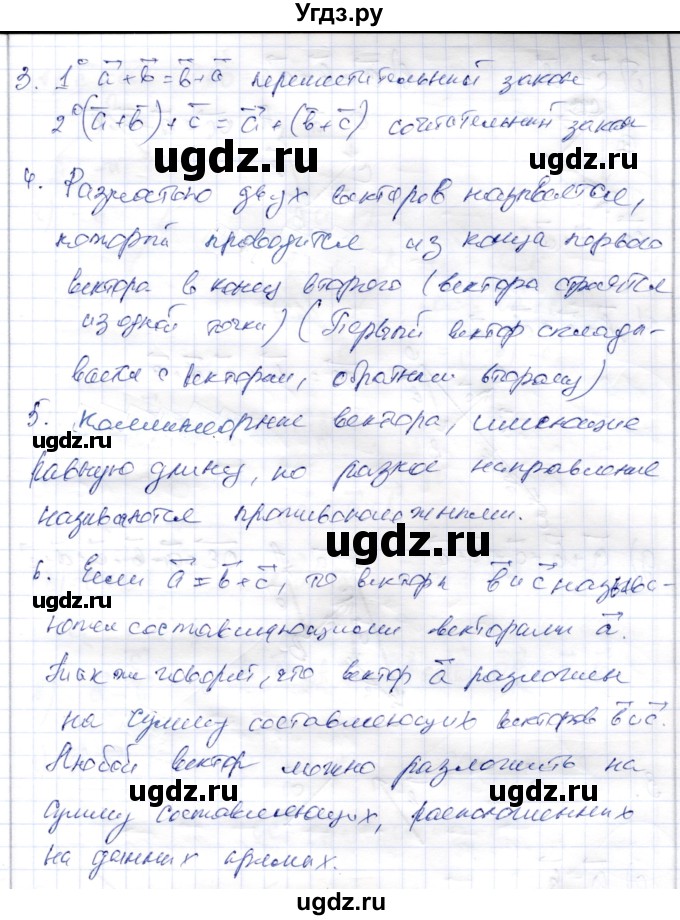 Угдз.ру
3. 1° a⃗ + b⃗ = b⃗ + a⃗ переместительный закон
2° (a⃗ + b⃗) + c⃗ = a⃗ + (b⃗ + c⃗) сочитательный закон
ugdz.ru
4. Разностью двух векторов называется,
который проводится из конца первого
ugdz.ru
вектора в конец второго (вектора строятся
из одной точки) (Первый вектор склады-
ugdz.ru
вается с вектором, обратным второму)
5. Коллинеарные вектора, имеющие
ugdz.ru
равную длину, но разное направление
называются противоположными.
ugdz.ru
6. Если a⃗ = b⃗ + c⃗, то вектора b⃗ и c⃗ называ-
ugdz.ru
ются составляющими векторами a⃗.
Также говорят, что вектор a⃗ разложен
ugdz.ru
на сумму составляющих векторов b⃗ и c⃗.
Любой вектор можно разложить на
ugdz.ru
сумму составляющих, расположенных
ugdz.ru
на данных прямых.
ugdz.ru